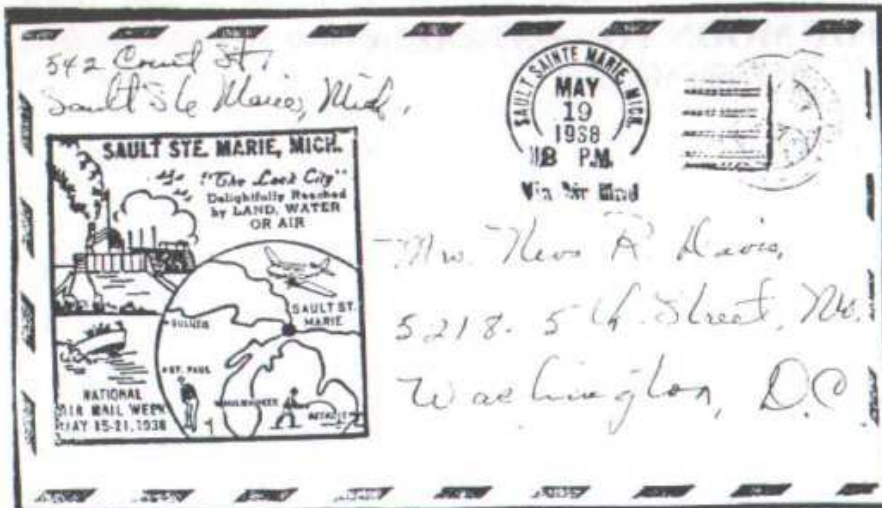 542 Court St.
Sault Ste Marie, Mich.
SAULT SAINTE MARIE, MICH.
MAY
19
1938
PM.
Via Air Mail
SAULT STE. MARIE, MICH.
"The Lock City"
Delightfully Reached
by LAND, WATER
OR AIR
SAULT ST.
MARIE
DULUTH
ST. PAUL
MILWAUKEE
DETROIT
NATIONAL
AIR MAIL WEEK
MAY 15-21, 1938
R. Davis,
5218- 5th Street, NW.
Washington, D.C